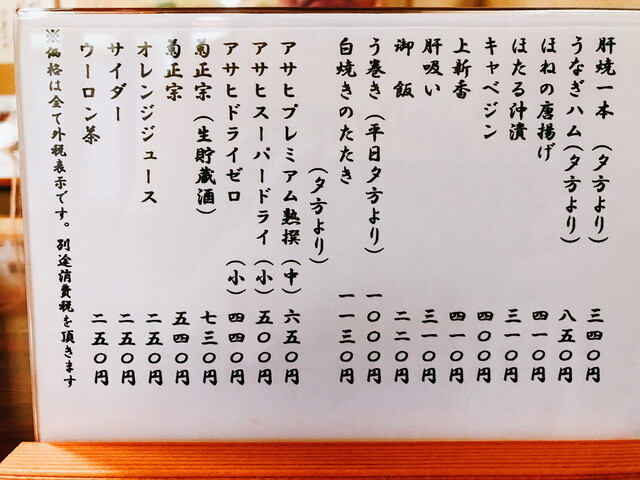 肝焼一本（夕方より） 三四〇円
うなぎハム（夕方より） 八五〇円
ほねの唐揚げ 四一〇円
ほたる沖漬 三一〇円
キャベジン 四〇〇円
上新香 四一〇円
肝吸い 三一〇円
御飯 二二〇円
う巻き（平日夕方より） 一〇〇〇円
白焼きのたたき 一一三〇円
（夕方より）
アサヒプレミアム熟撰（中） 六五〇円
アサヒスーパードライ（小） 五〇〇円
アサヒドライゼロ（小） 四四〇円
菊正宗（生貯蔵酒） 七三〇円
菊正宗 五四〇円
オレンジジュース 二五〇円
サイダー 二五〇円
ウーロン茶 二五〇円
※価格は全て外税表示です。別途消費税を頂きます